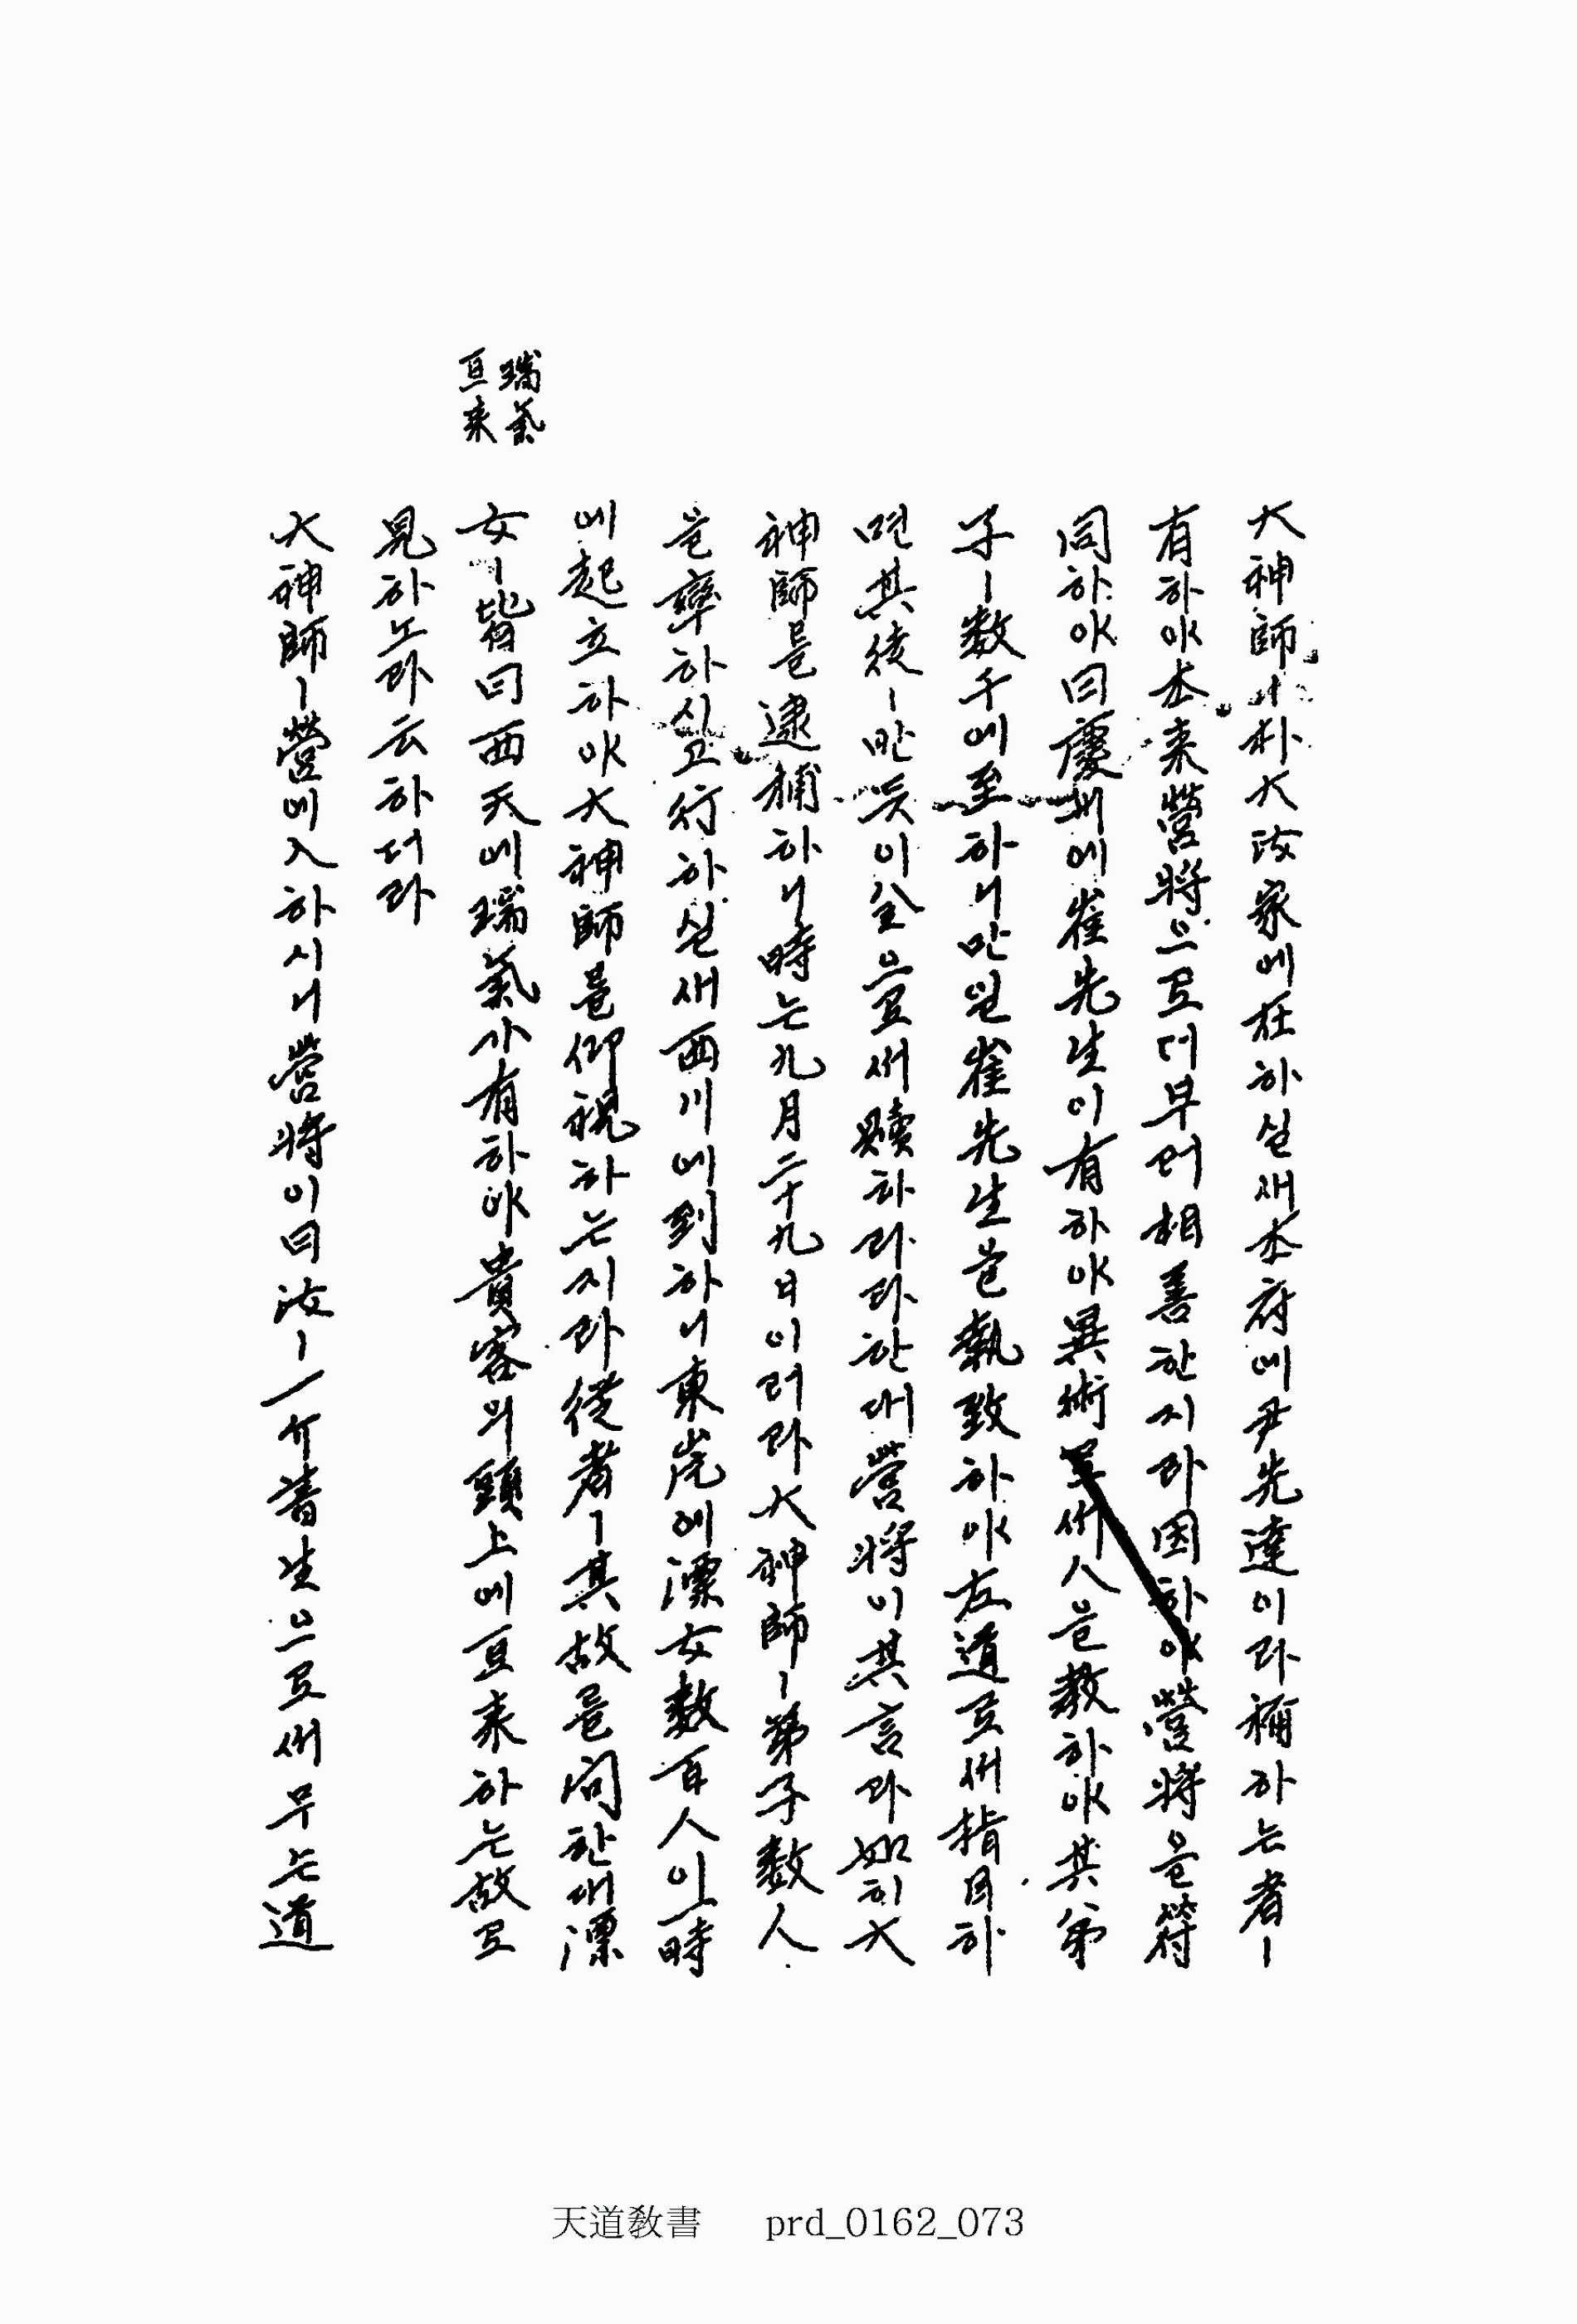 大神師ㅣ朴大汝家에在하실새本府에尹先達이라稱하는者ㅣ
有하야本來營將으로더부러相善한지라因하야營將을符
同하야曰慶州에崔先生이有하야異術로써人을敎하야其弟
子ㅣ數千에至하니만일崔先生을執致하야左道로써指目하
면其徒ㅣ반듯이金으로써贖하리라한대營將이其言과如히大
神師를逮捕하니時는九月二十九日이러라大神師ㅣ弟子數人
을率하시고行하실새西川에到하니東岸에漂女數百人이一時
에起立하야大神師를仰視하는지라從者ㅣ其故를問한대漂
瑞氣
亘來
女ㅣ皆曰西天에瑞氣가有하야貴客의頭上에亘來하는故로
見하노라云하더라
大神師ㅣ營에入하시니營將이曰汝ㅣ一介書生으로써무슨道
天道敎書 prd_0162_073